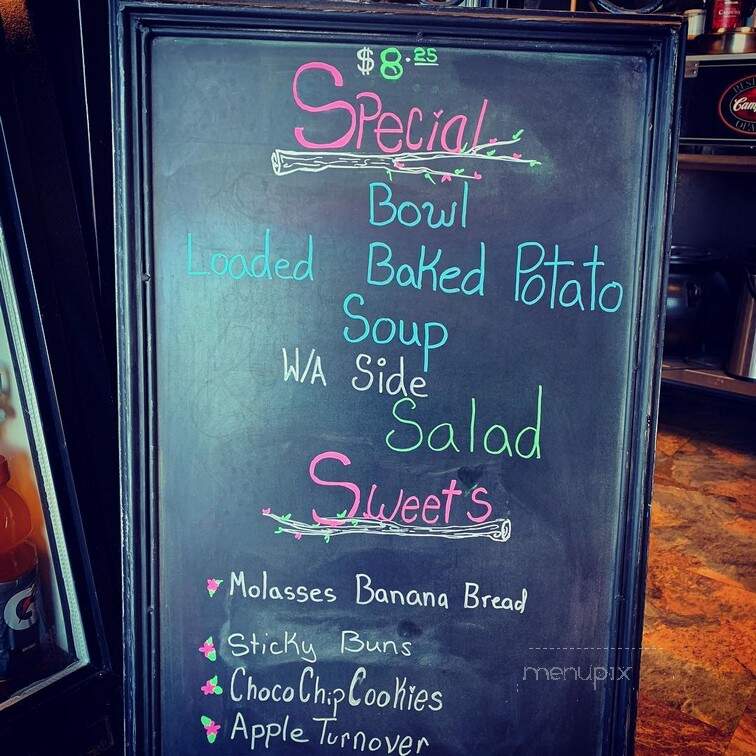 $8.25
Special
Bowl
Loaded Baked Potato
Soup
W/A Side
Salad
Sweets
Molasses Banana Bread
Sticky Buns
Choco Chip Cookies
Apple Turnover
menupix